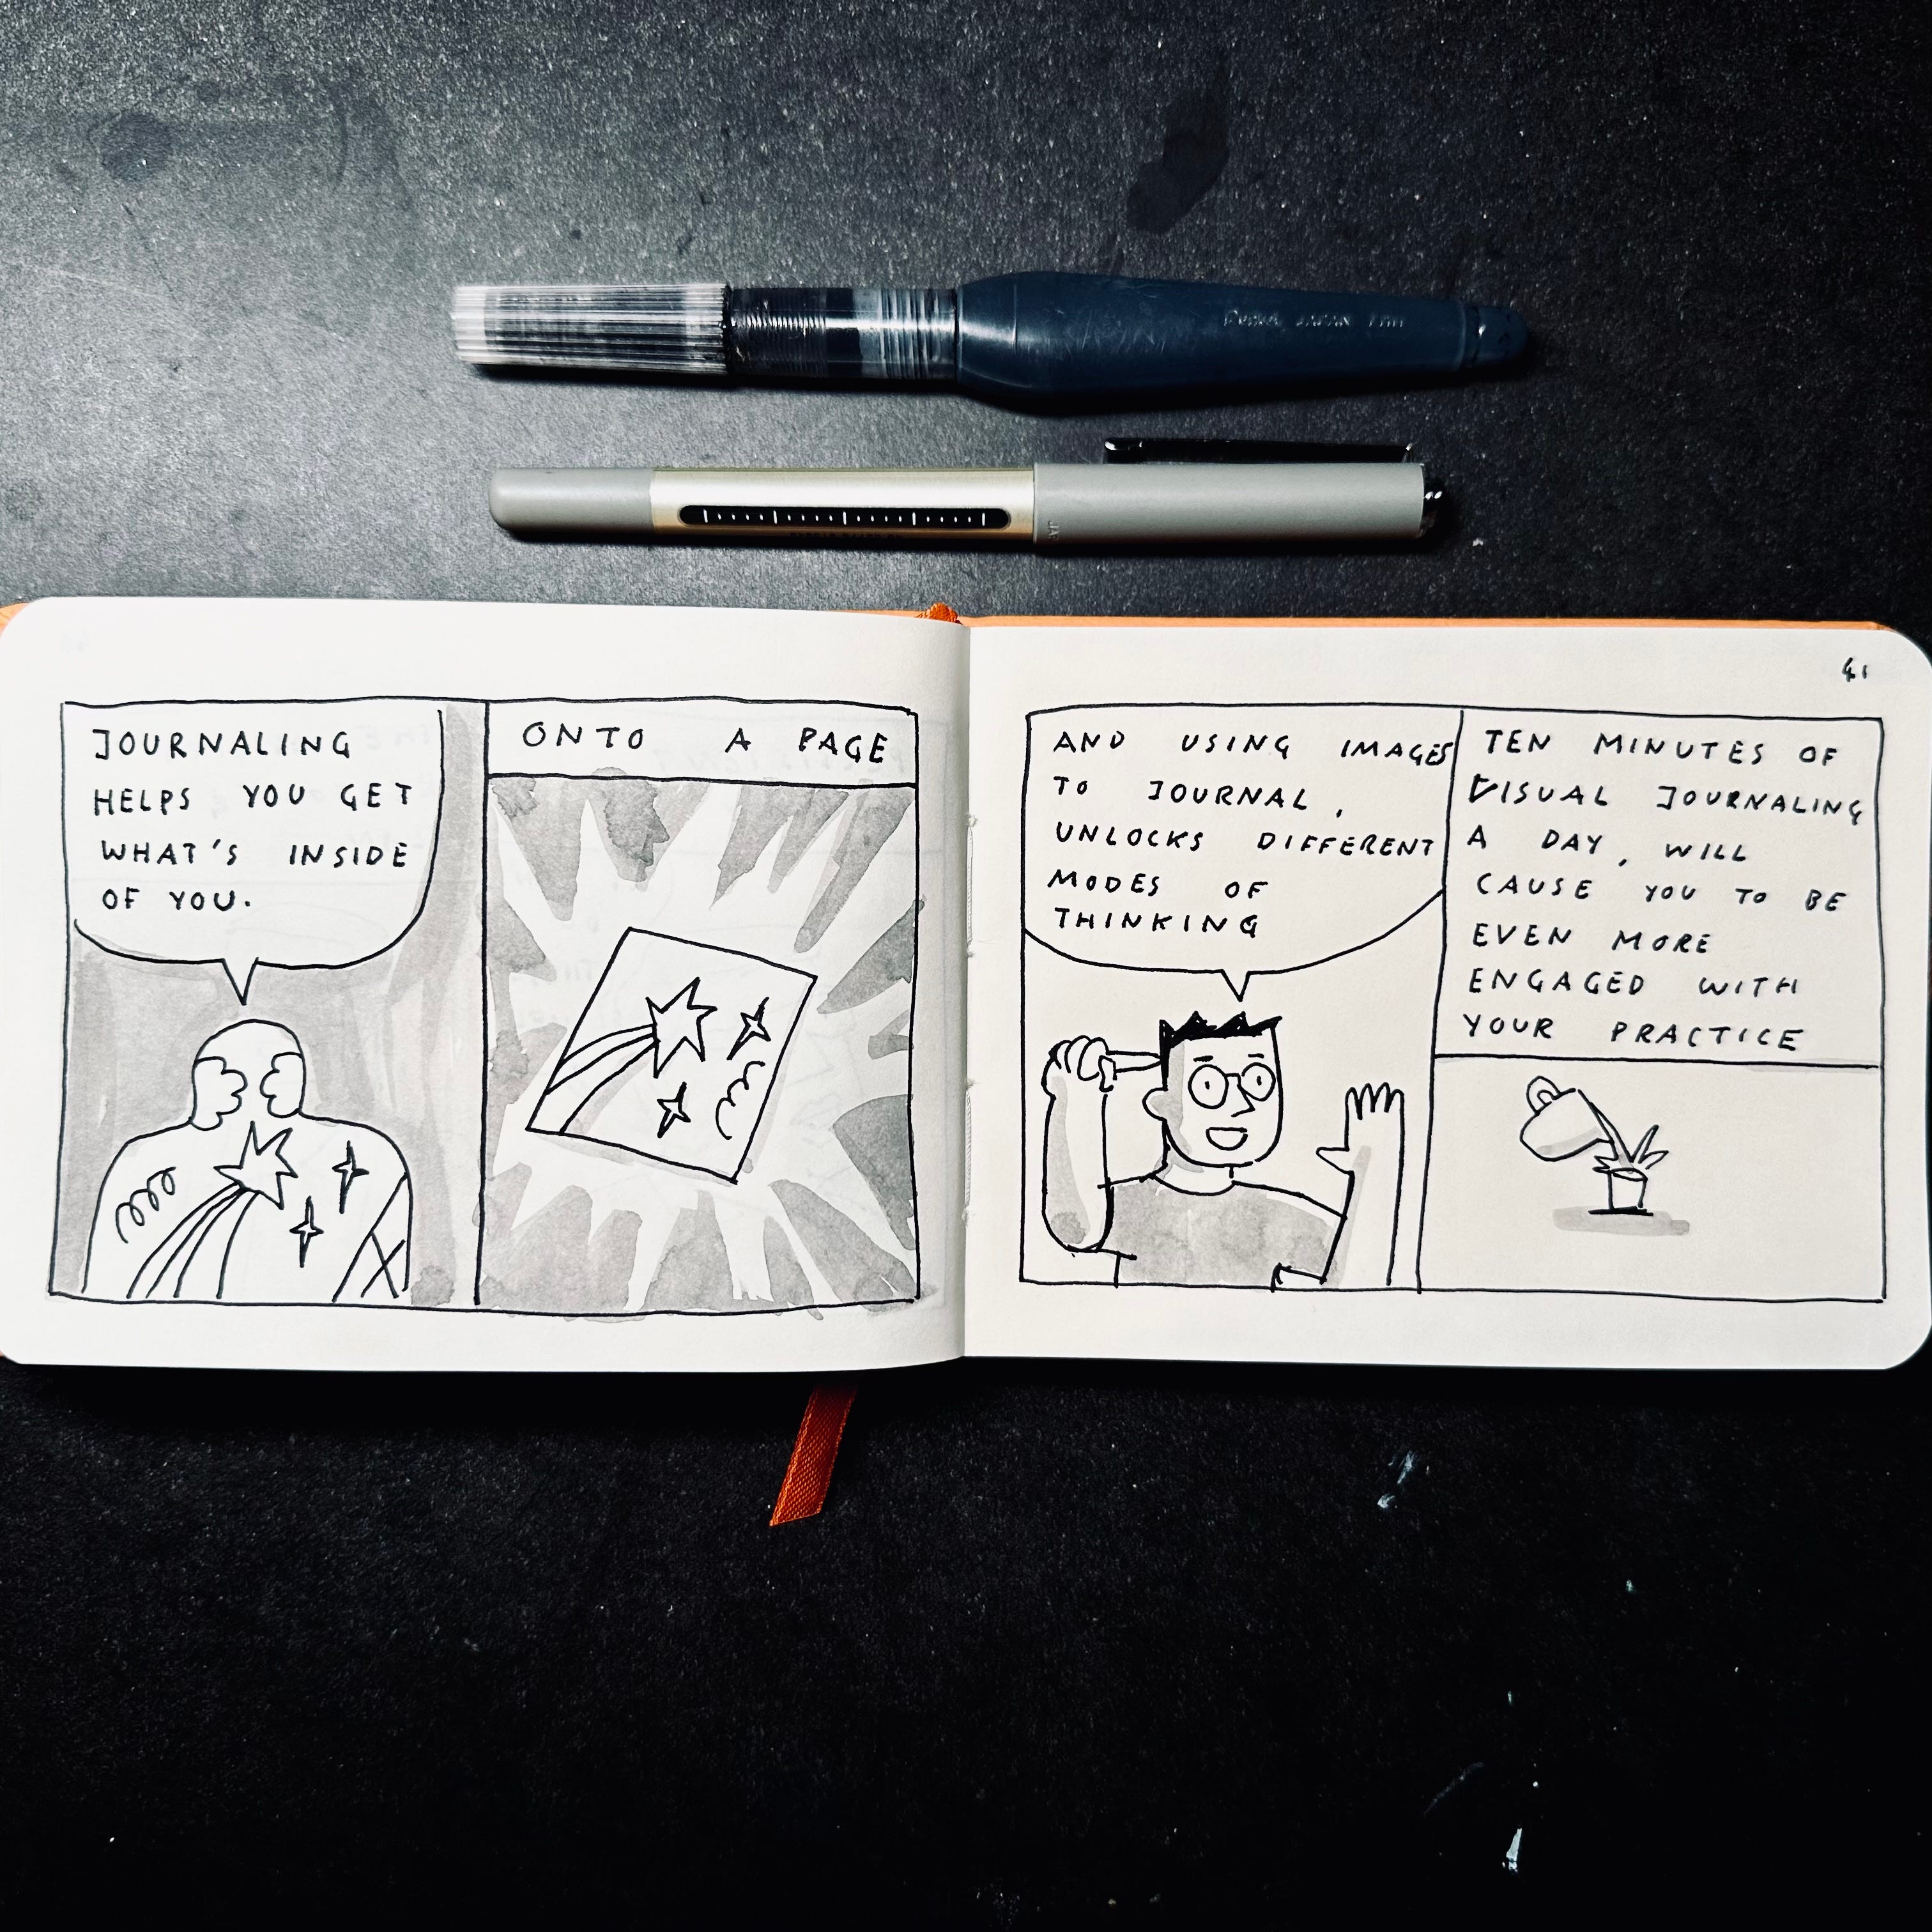 JOURNALING
HELPS YOU GET
WHAT'S INSIDE
OF YOU.
ONTO A PAGE
41
AND USING IMAGES
TO JOURNAL,
UNLOCKS DIFFERENT
MODES OF
THINKING
TEN MINUTES OF
VISUAL JOURNALING
A DAY, WILL
CAUSE YOU TO BE
EVEN MORE
ENGAGED WITH
YOUR PRACTICE